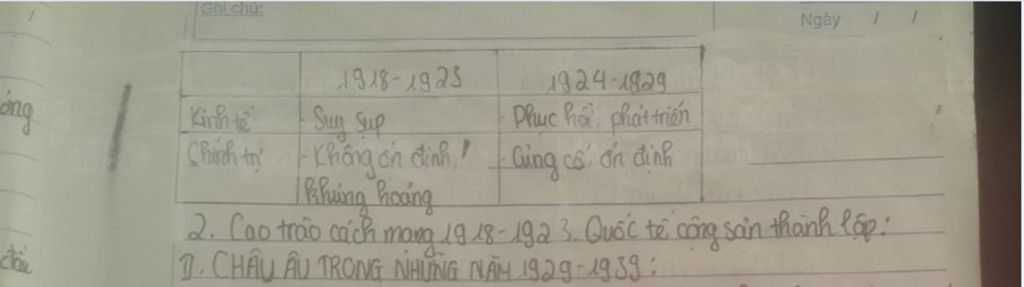 Ghi chú:
Ngày / /
1918-1923 1924-1929
Kinh tế - Suy sụp - Phục hồi, phát triển
Chính trị - Không ổn định, - Củng cố, ổn định
khủng hoảng
2. Cao trào cách mạng 1918-1923. Quốc tế cộng sản thành lập:
II. CHÂU ÂU TRONG NHỮNG NĂM 1929-1939: